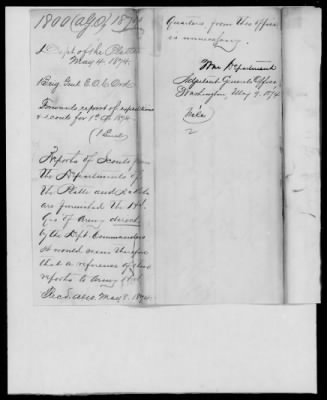 1800 (AGO) 1874
Dept of the Platte
May 4. 1874.
Brig Genl E.O.C. Ord
Forwards report of expeditions
& scouts for 1874
(1 Encl)
Reports of Scouts from
the Departments of
the Platte and Dakota
are furnished the Hd.
Qrs of Army direct
by the Dept. Commanders
it would seem therefore
that a reference of these
reports to Army
Recd. May 8. 1874.
Quarters from this office
is unnecessary.
War Department
Adjutant General's Office
Washington, May 9, 1874
File